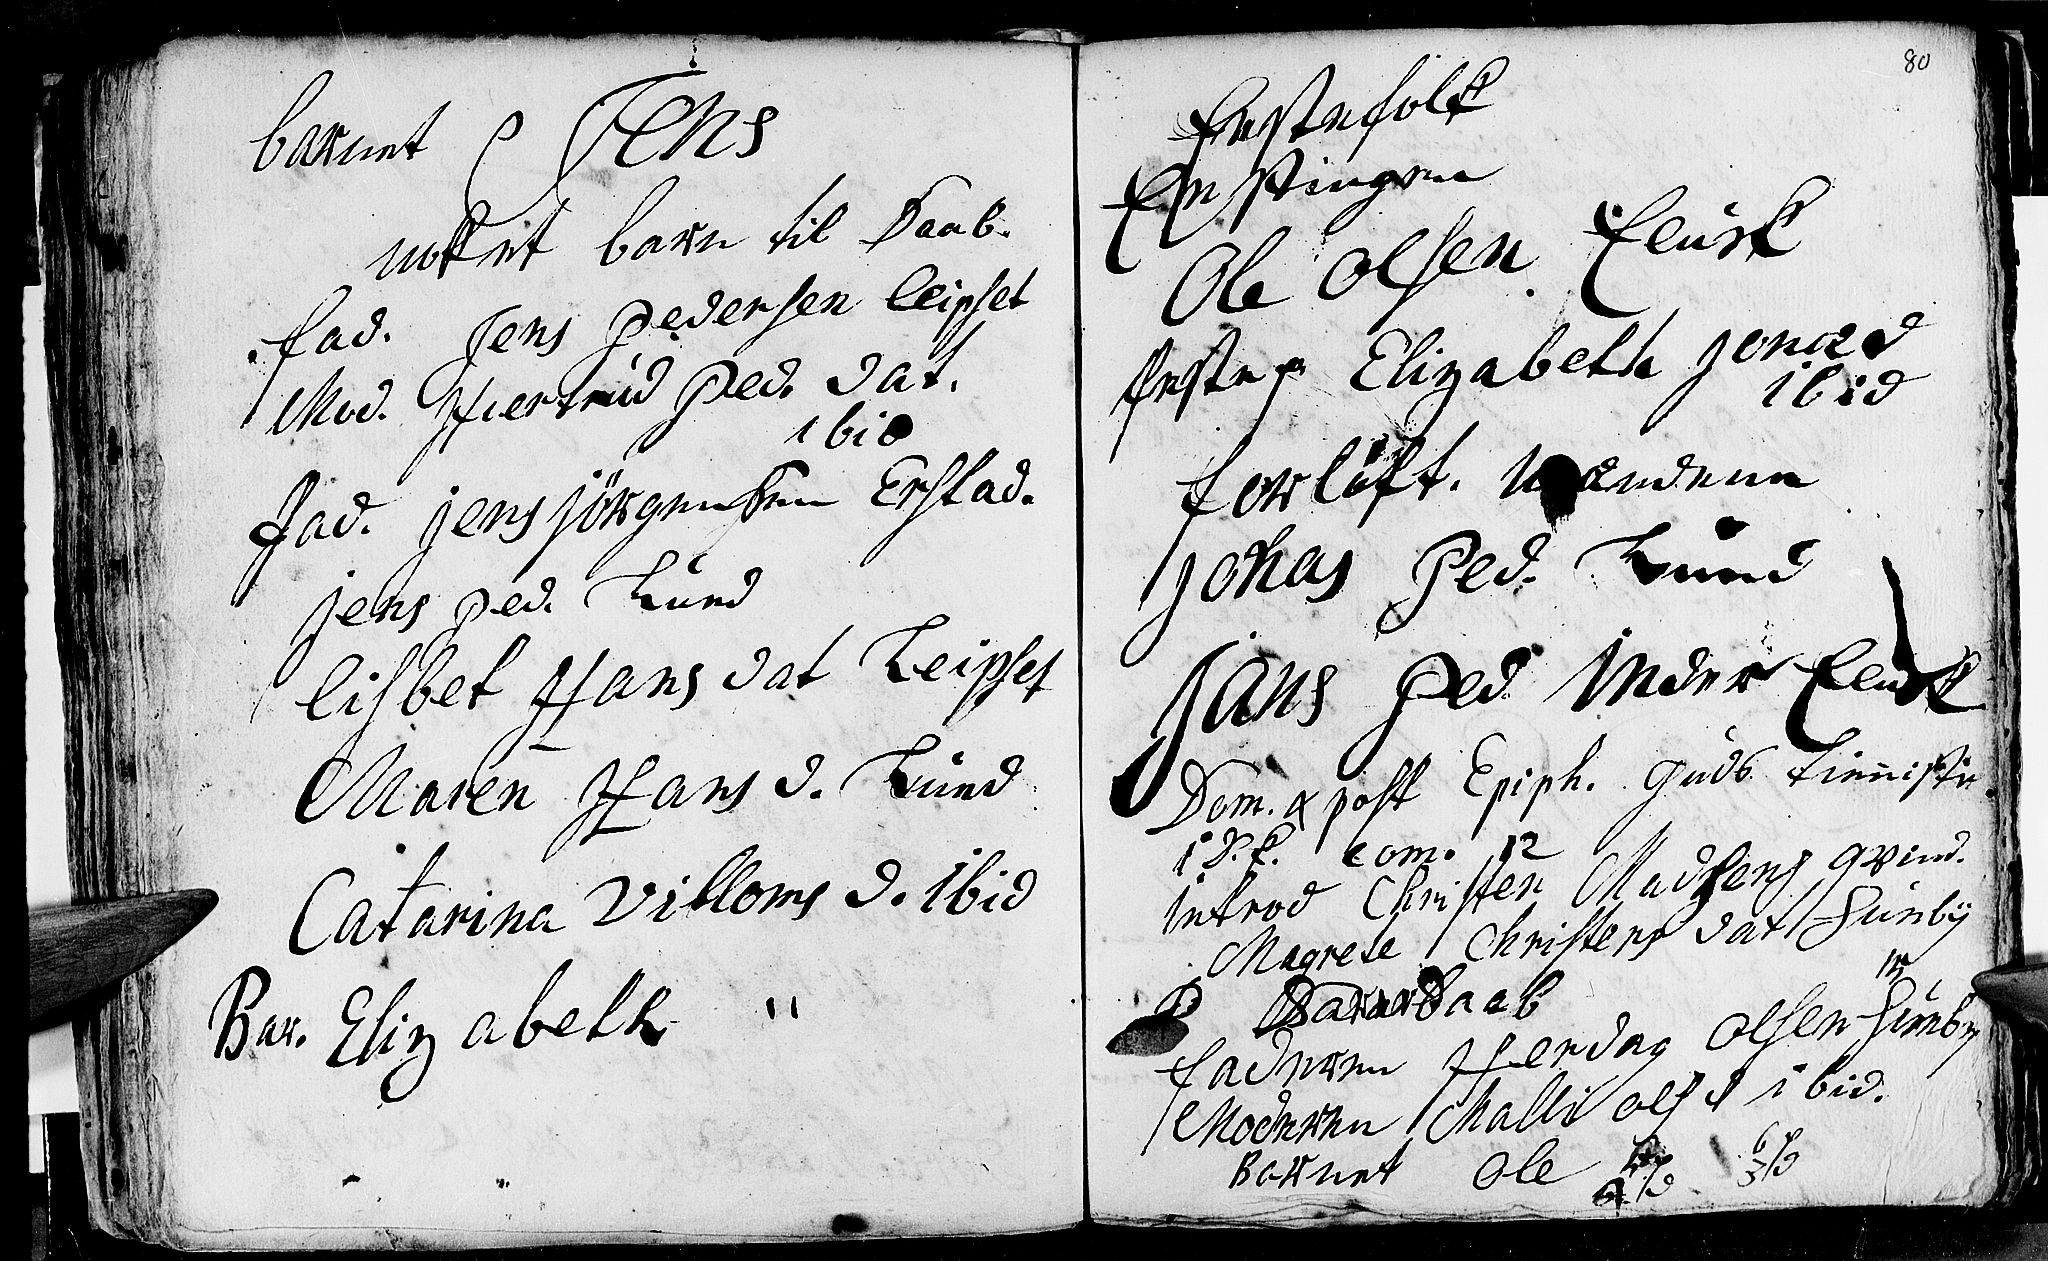 barnet Jens
noket barn til Daab.
fad. Jens Pedersen Leipset
Mod. Hiertrud Ped. dat.
ibid
Fad. Jens Jörgensen Erstad.
Jens Ped. Lund
Lisbet Hans dat Leipset
Maren Hans d. Lund
Catarina Villoms d. ibid
Bar. Elizabeth "
80
festefolk
festingen
Ole Olsen Elusk
feste p Elizabeth Jonæd
ibid
forlöft. mændene
Jonas Ped. Lund
Jans Ped inder Elusk
Dom. 4 post Epiph. Guds tienniste
i com. 12
introd Christen Madsens qvind.
Magrete Christens dat Sünby
Barne Daab
faderen Herdag Olsen Sünby
Moderen Malli Ols d ibid.
Barnet Ole